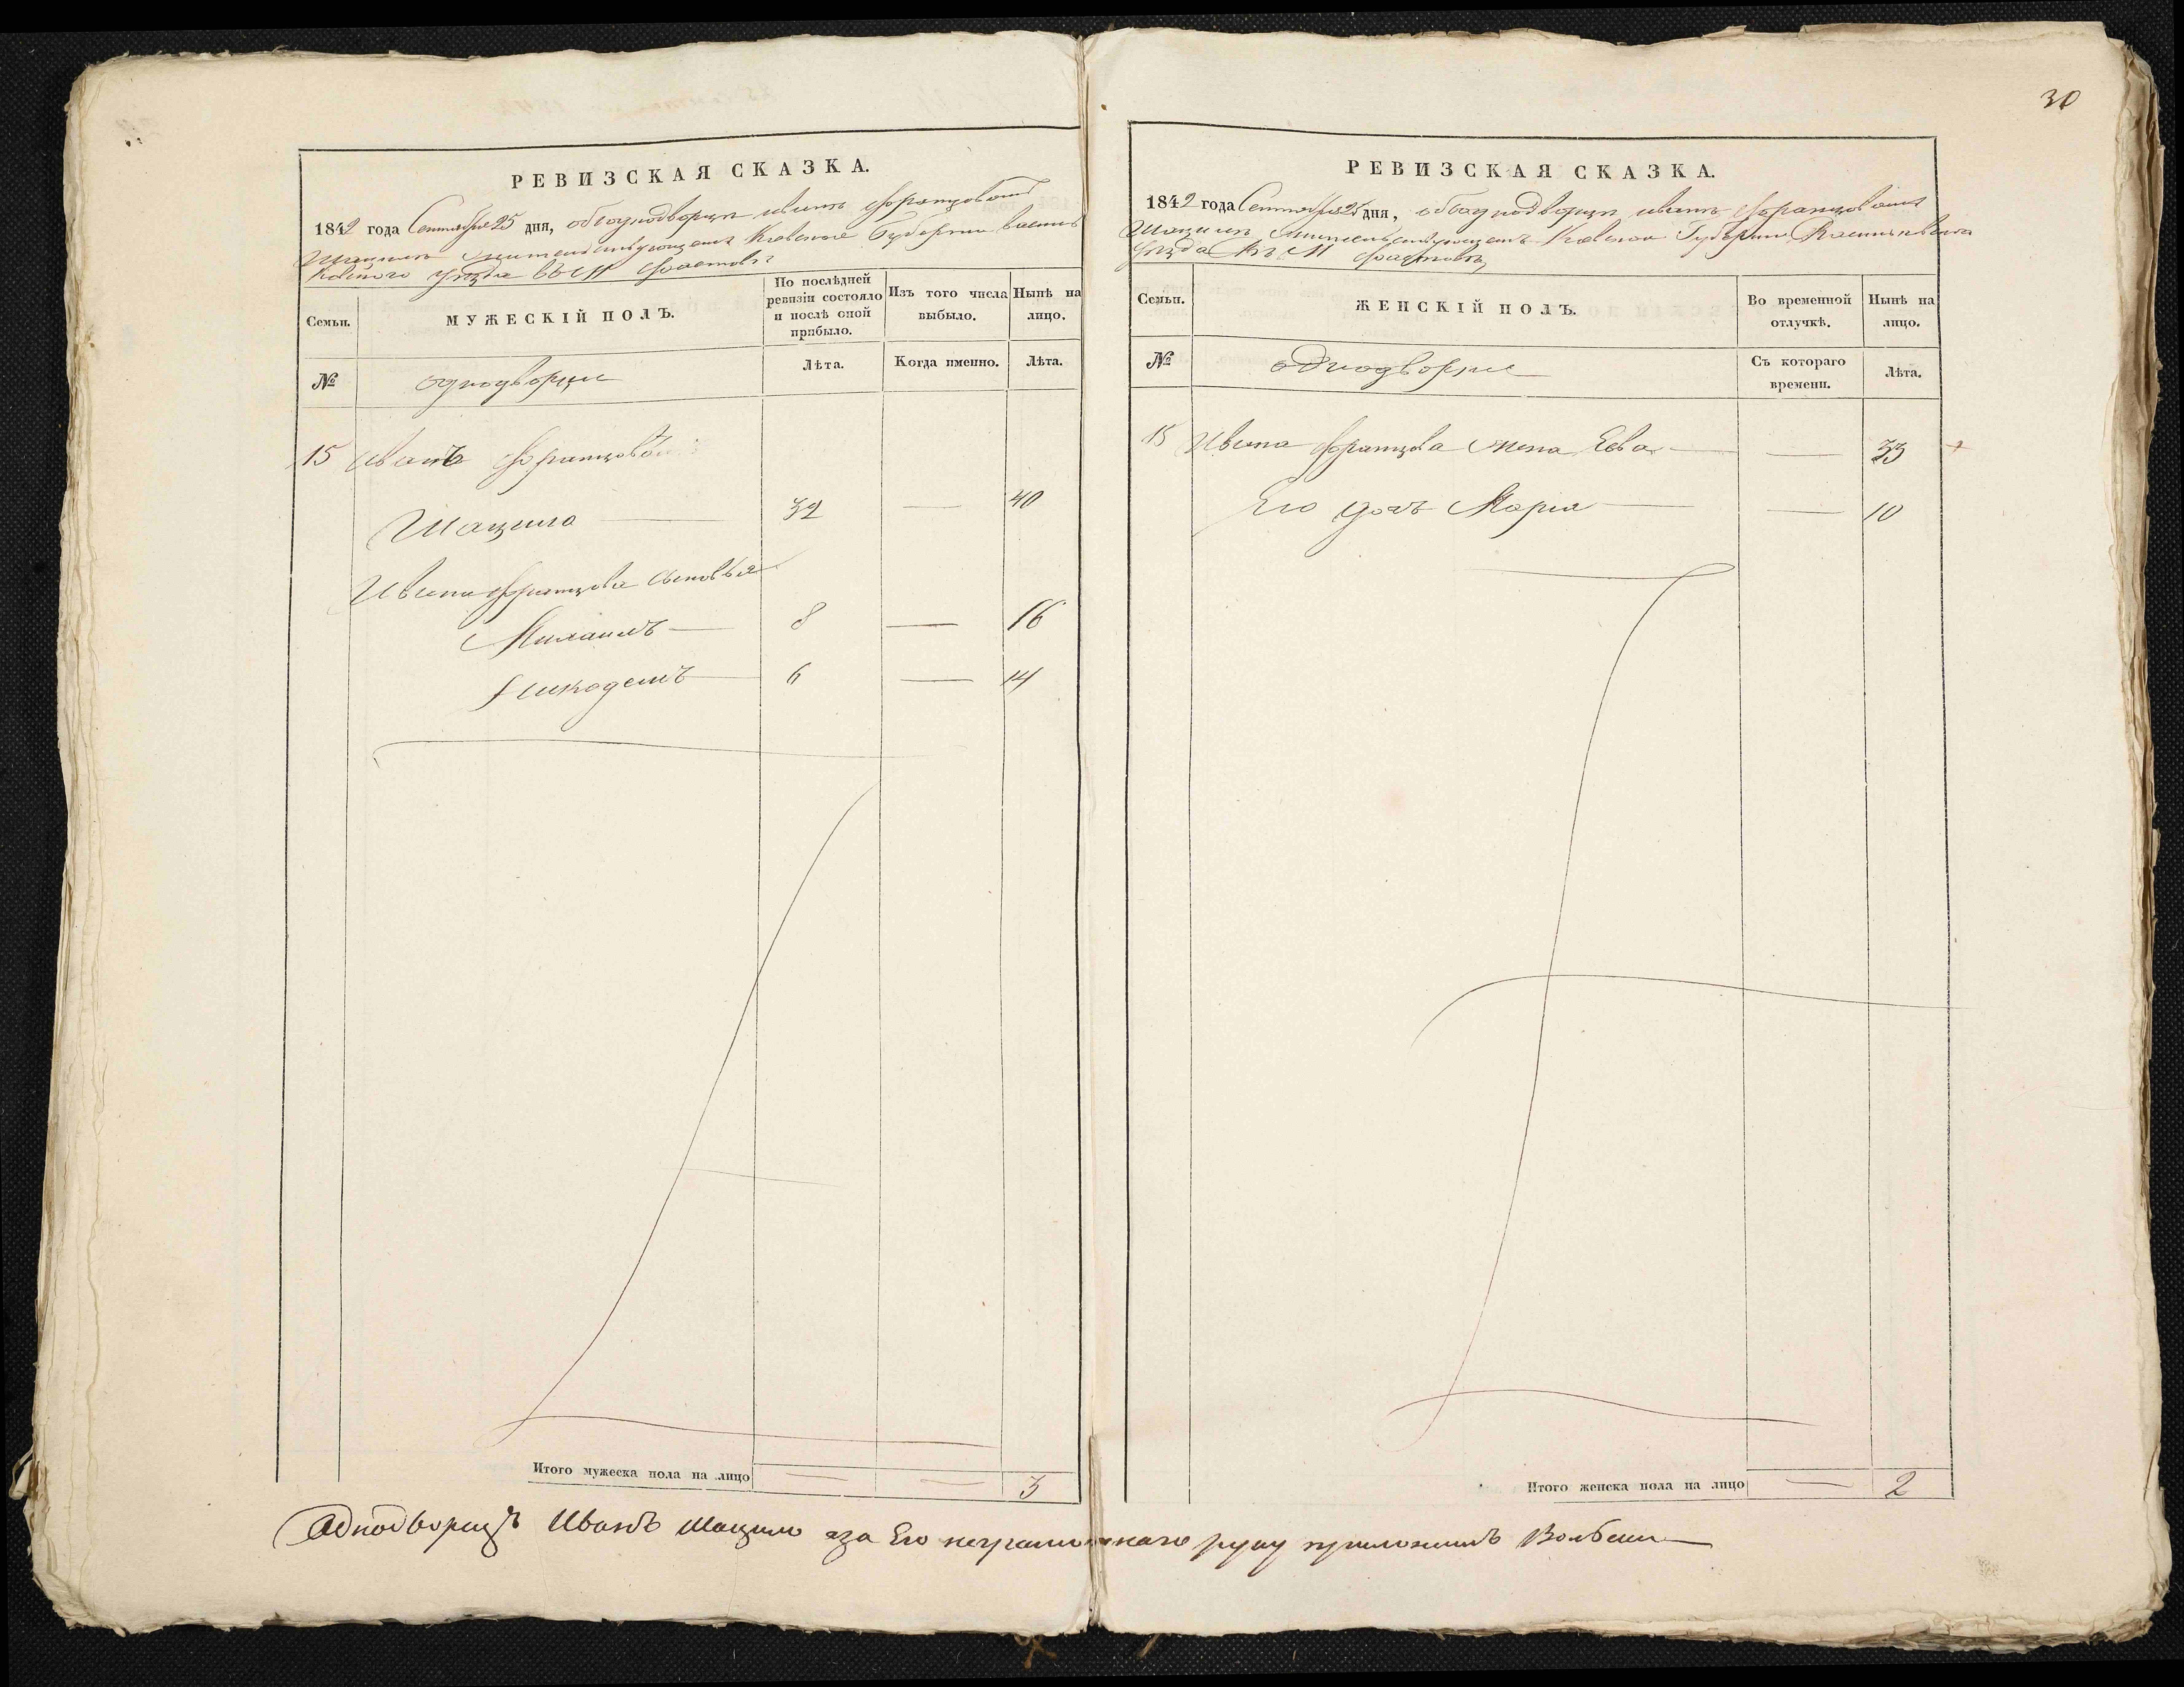 30
РЕВИЗСКАЯ СКАЗКА.
1842 года Сентября 25 дня, объ однодворцѣ иванѣ францовѣ
Шацилѣ жительствующемъ Киевской Губернии василь
ковского уѣзда въ М фастовѣ
Семьи.
МУЖЕСКІЙ ПОЛЪ.
По послѣдней ревизіи состояло и послѣ оной прибыло.
Изъ того числа выбыло.
Нынѣ на лицо.
№
однодворцы
Лѣта.
Когда именно.
Лѣта.
15 иванъ францовъ
Шацило 32 — 40
Ивана францова сыновья
Михаилъ — 8 — 16
Никодемъ — 6 — 14
Итого мужеска пола на лицо — — 3
РЕВИЗСКАЯ СКАЗКА.
1842 года Сентября 25 дня, объ однодворцѣ иванѣ францовѣ
Шацилѣ жительствующемъ Киевской Губернии Васильковского
уѣзда Въ М фастовѣ
Семьи.
ЖЕНСКІЙ ПОЛЪ.
Во временной отлучкѣ.
Нынѣ на лицо.
№
однодворцы
Съ котораго времени.
Лѣта.
15 Ивана францова жена Ева — — 33
Его дочь Марія — — 10
Итого женска пола на лицо — 2
Однодворецъ Иванъ Шацило а за Его неграмотнаго руку приложилъ